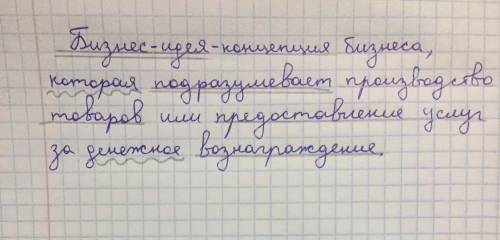 Бизнес-идея-концепция бизнеса,
которая подразумевает производство
товаров или предоставление услуг
за денежное вознаграждение.